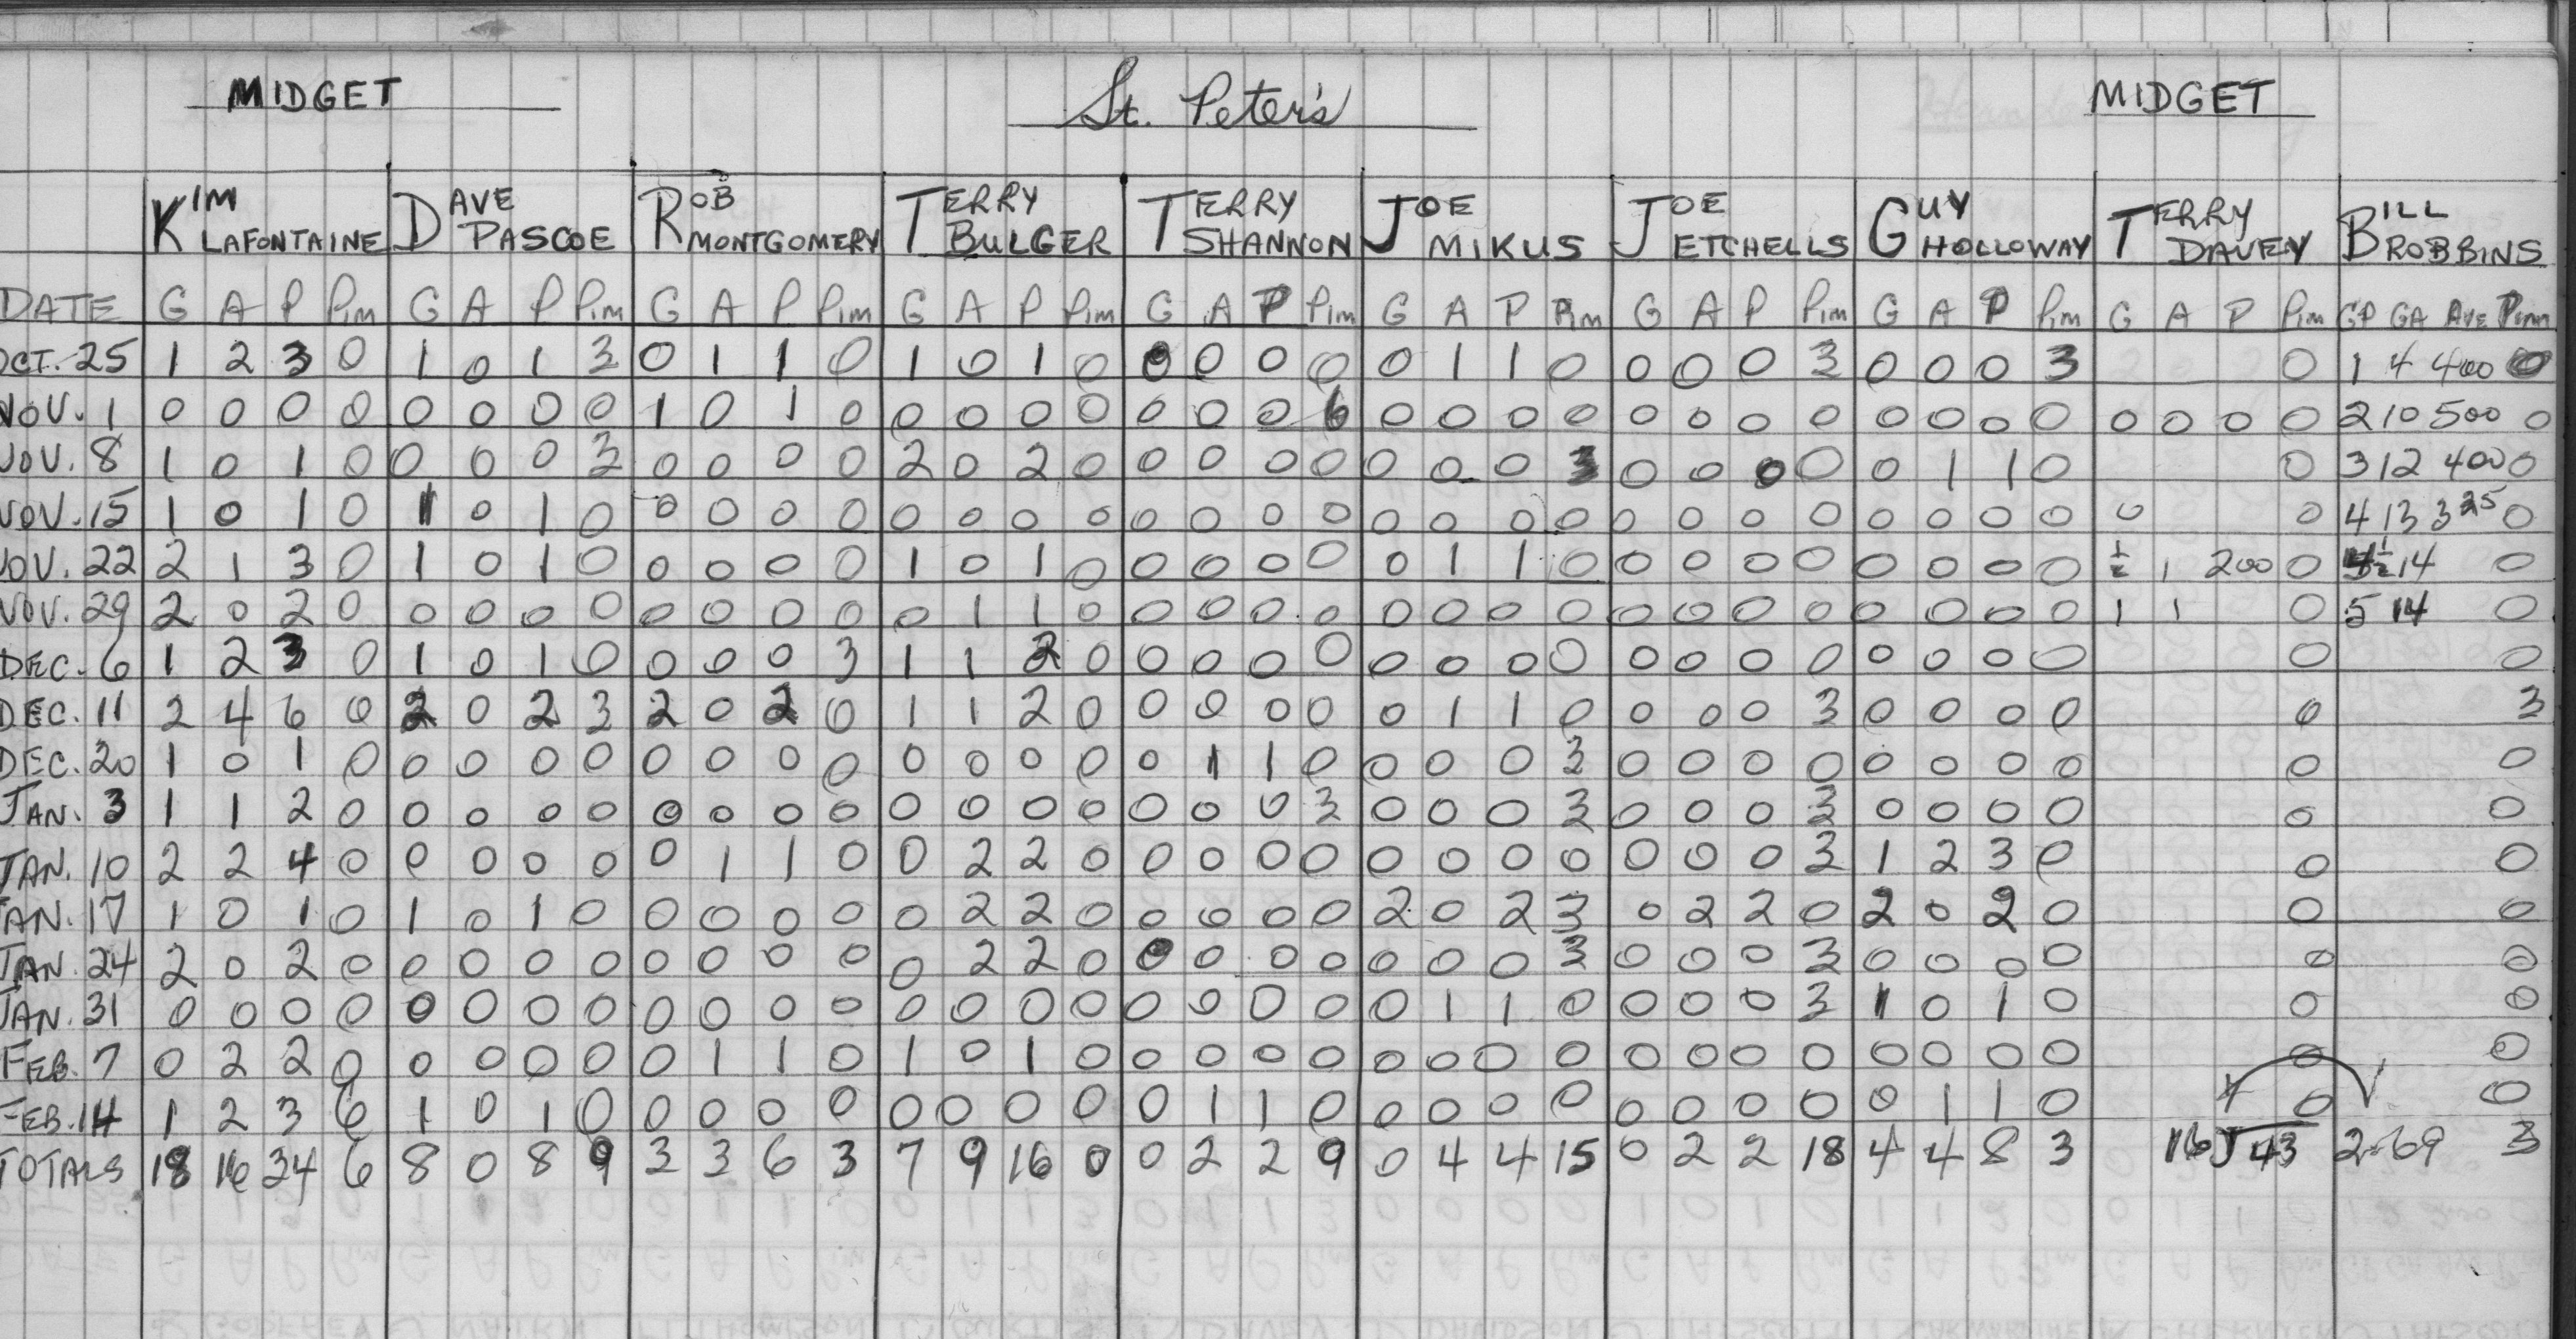 MIDGET St. Peter's MIDGET
KIM LAFONTAINE DAVE PASCOE ROB MONTGOMERY TERRY BULGER TERRY SHANNON JOE MIKUS JOE ETCHELLS GUY HOLLOWAY TERRY DAVEY BILL ROBBINS
DATE G A P Pim G A P Pim G A P Pim G A P Pim G A P Pim G A P Pim G A P Pim G A P Pim G A P Pim GP GA Ave Pim
OCT. 25 1 2 3 0 1 0 1 3 0 1 1 0 1 0 1 0 0 0 0 0 0 1 1 0 0 0 0 3 0 0 0 3 0 1 4 400 0
NOV. 1 0 0 0 0 0 0 0 0 1 0 1 0 0 0 0 0 0 0 0 6 0 0 0 0 0 0 0 0 0 0 0 0 0 0 0 0 2 10 500 0
NOV. 8 1 0 1 0 0 0 0 3 0 0 0 0 2 0 2 0 0 0 0 0 0 0 0 3 0 0 0 0 0 1 1 0 0 3 12 400 0
NOV. 15 1 0 1 0 1 0 1 0 0 0 0 0 0 0 0 0 0 0 0 0 0 0 0 0 0 0 0 0 0 0 0 0 0 0 4 13 3 25 0
NOV. 22 2 1 3 0 1 0 1 0 0 0 0 0 1 0 1 0 0 0 0 0 0 1 1 0 0 0 0 0 0 0 0 0 1/2 1 200 0 4 1/2 14 0
NOV. 29 2 0 2 0 0 0 0 0 0 0 0 0 0 1 1 0 0 0 0 0 0 0 0 0 0 0 0 0 0 0 0 0 1 1 0 5 14 0
DEC. 6 1 2 3 0 1 0 1 0 0 0 0 3 1 1 2 0 0 0 0 0 0 0 0 0 0 0 0 0 0 0 0 0 0 0
DEC. 11 2 4 6 0 2 0 2 3 2 0 2 0 1 1 2 0 0 0 0 0 0 1 1 0 0 0 0 3 0 0 0 0 0 3
DEC. 20 1 0 1 0 0 0 0 0 0 0 0 0 0 0 0 0 0 1 1 0 0 0 0 3 0 0 0 0 0 0 0 0 0 0
JAN. 3 1 1 2 0 0 0 0 0 0 0 0 0 0 0 0 0 0 0 0 3 0 0 0 3 0 0 0 3 0 0 0 0 0 0
JAN. 10 2 2 4 0 0 0 0 0 0 1 1 0 0 2 2 0 0 0 0 0 0 0 0 0 0 0 0 3 1 2 3 0 0 0
JAN. 17 1 0 1 0 1 0 1 0 0 0 0 0 0 2 2 0 0 0 0 0 2 0 2 3 0 2 2 0 2 0 2 0 0 0
JAN. 24 2 0 2 0 0 0 0 0 0 0 0 0 0 2 2 0 0 0 0 0 0 0 0 3 0 0 0 3 0 0 0 0 0 0
JAN. 31 0 0 0 0 0 0 0 0 0 0 0 0 0 0 0 0 0 0 0 0 0 1 1 0 0 0 0 3 1 0 1 0 0 0
FEB. 7 0 2 2 0 0 0 0 0 0 1 1 0 1 0 1 0 0 0 0 0 0 0 0 0 0 0 0 0 0 0 0 0 0 0
FEB. 14 1 2 3 6 1 0 1 0 0 0 0 0 0 0 0 0 0 1 1 0 0 0 0 0 0 0 0 0 0 1 1 0 0 0
TOTALS 18 16 34 6 8 0 8 9 3 3 6 3 7 9 16 0 0 2 2 9 0 4 4 15 0 2 2 18 4 4 8 3 16 43 2.69 3